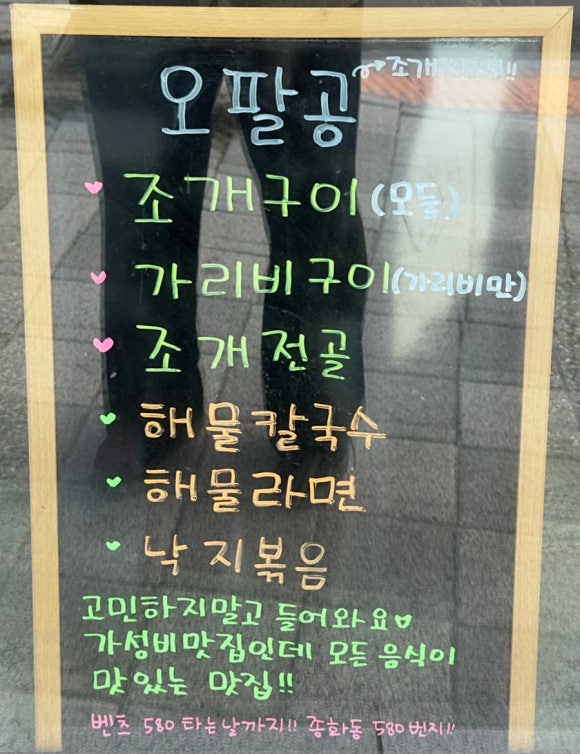 오팔공
조개
♥ 조개구이 (모듬)
♥ 가리비구이(가리비만)
♥ 조개전골
♥ 해물칼국수
♥ 해물라면
♥ 낙지볶음
고민하지말고 들어와요♡
가성비맛집인데 모든 음식이
맛있는 맛집!!
벤츠 580 타는날까지!! 중화동 580번지!!